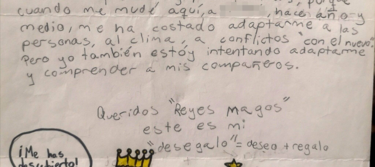 cuando me mudé aquí, a hace año y
medio, me ha costado adaptarme a las
personas, al clima, a conflictos "con el nuevo".
Pero yo también estoy intentando adaptarme
y comprender a mis compañeros.
Queridos "Reyes magos"
este es mi
"desegalo" = deseo + regalo
¡Me has
descubierto!